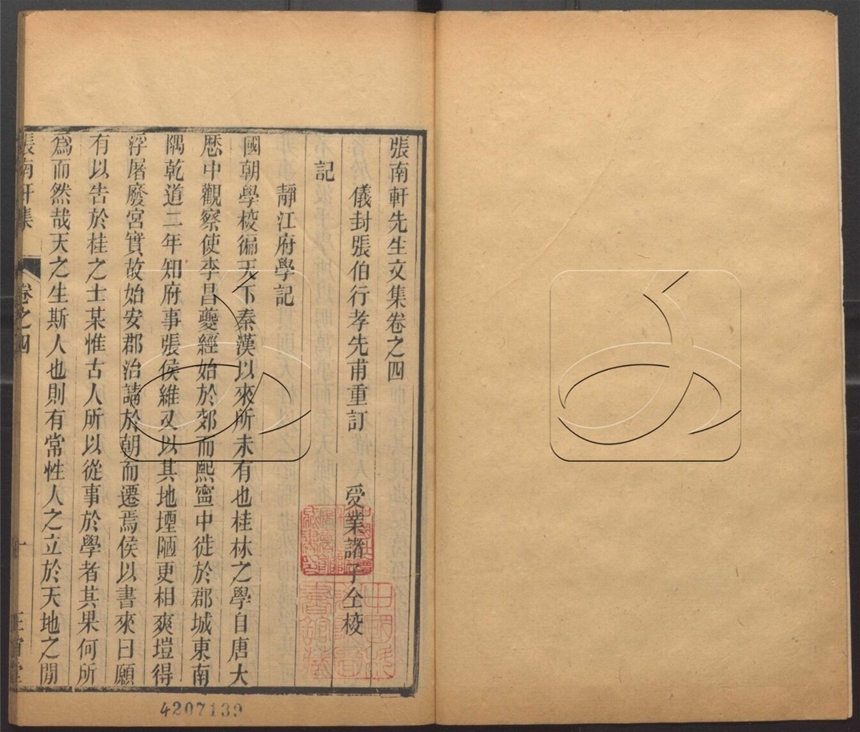 張南軒先生文集卷之四
儀封張伯行孝先甫重訂 受業諸子仝校
記
靜江府學記
國朝學校徧天下秦漢以來所未有也桂林之學自唐大
厯中觀察使李昌夔經始於郊而熙寧中徙於郡城東南
隅乾道二年知府事張侯維又以其地堙陋更相爽塏得
浮屠廢宮實故始安郡治請於朝而遷焉侯以書來曰願
有以告於桂之士某惟古人所以從事於學者其果何所
爲而然哉天之生斯人也則有常性人之立於天地之閒
張南軒集 卷之四 一 正誼堂
4207139